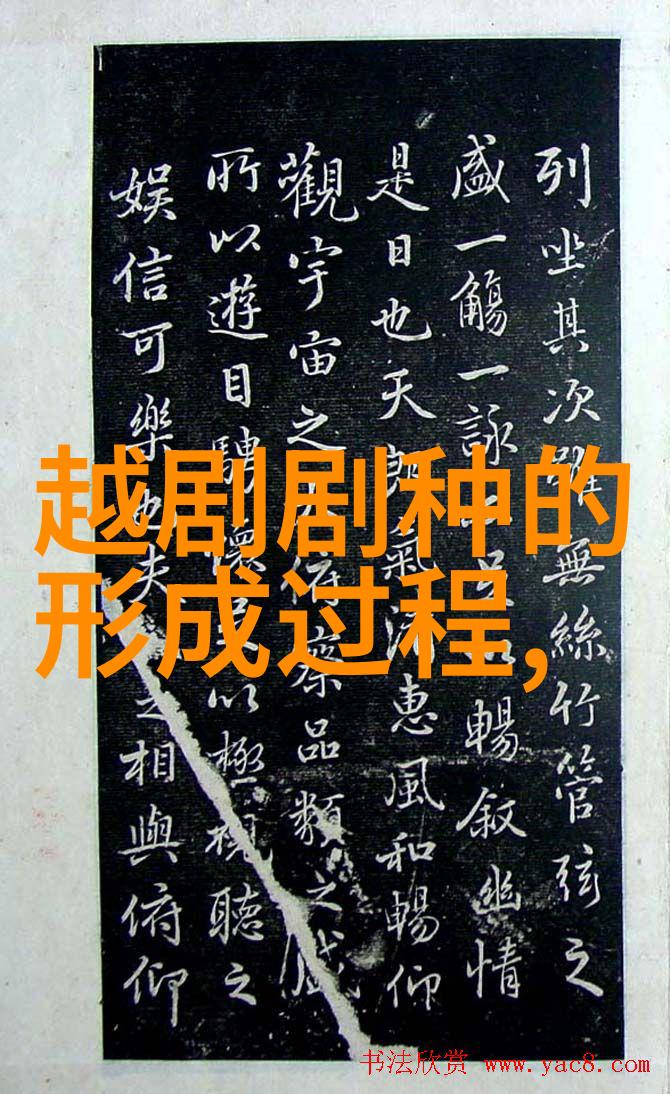 列坐其次雖無絲竹管弦之
盛一觴一詠暢叙幽情
是日也天朗氣惠風和暢仰
觀宇宙之俯察品類之盛
所以遊目騁懷以極視聽之
娛信可樂也夫之相與俯仰
越剧剧种的
形成过程,
书法欣赏 www.yac8.com